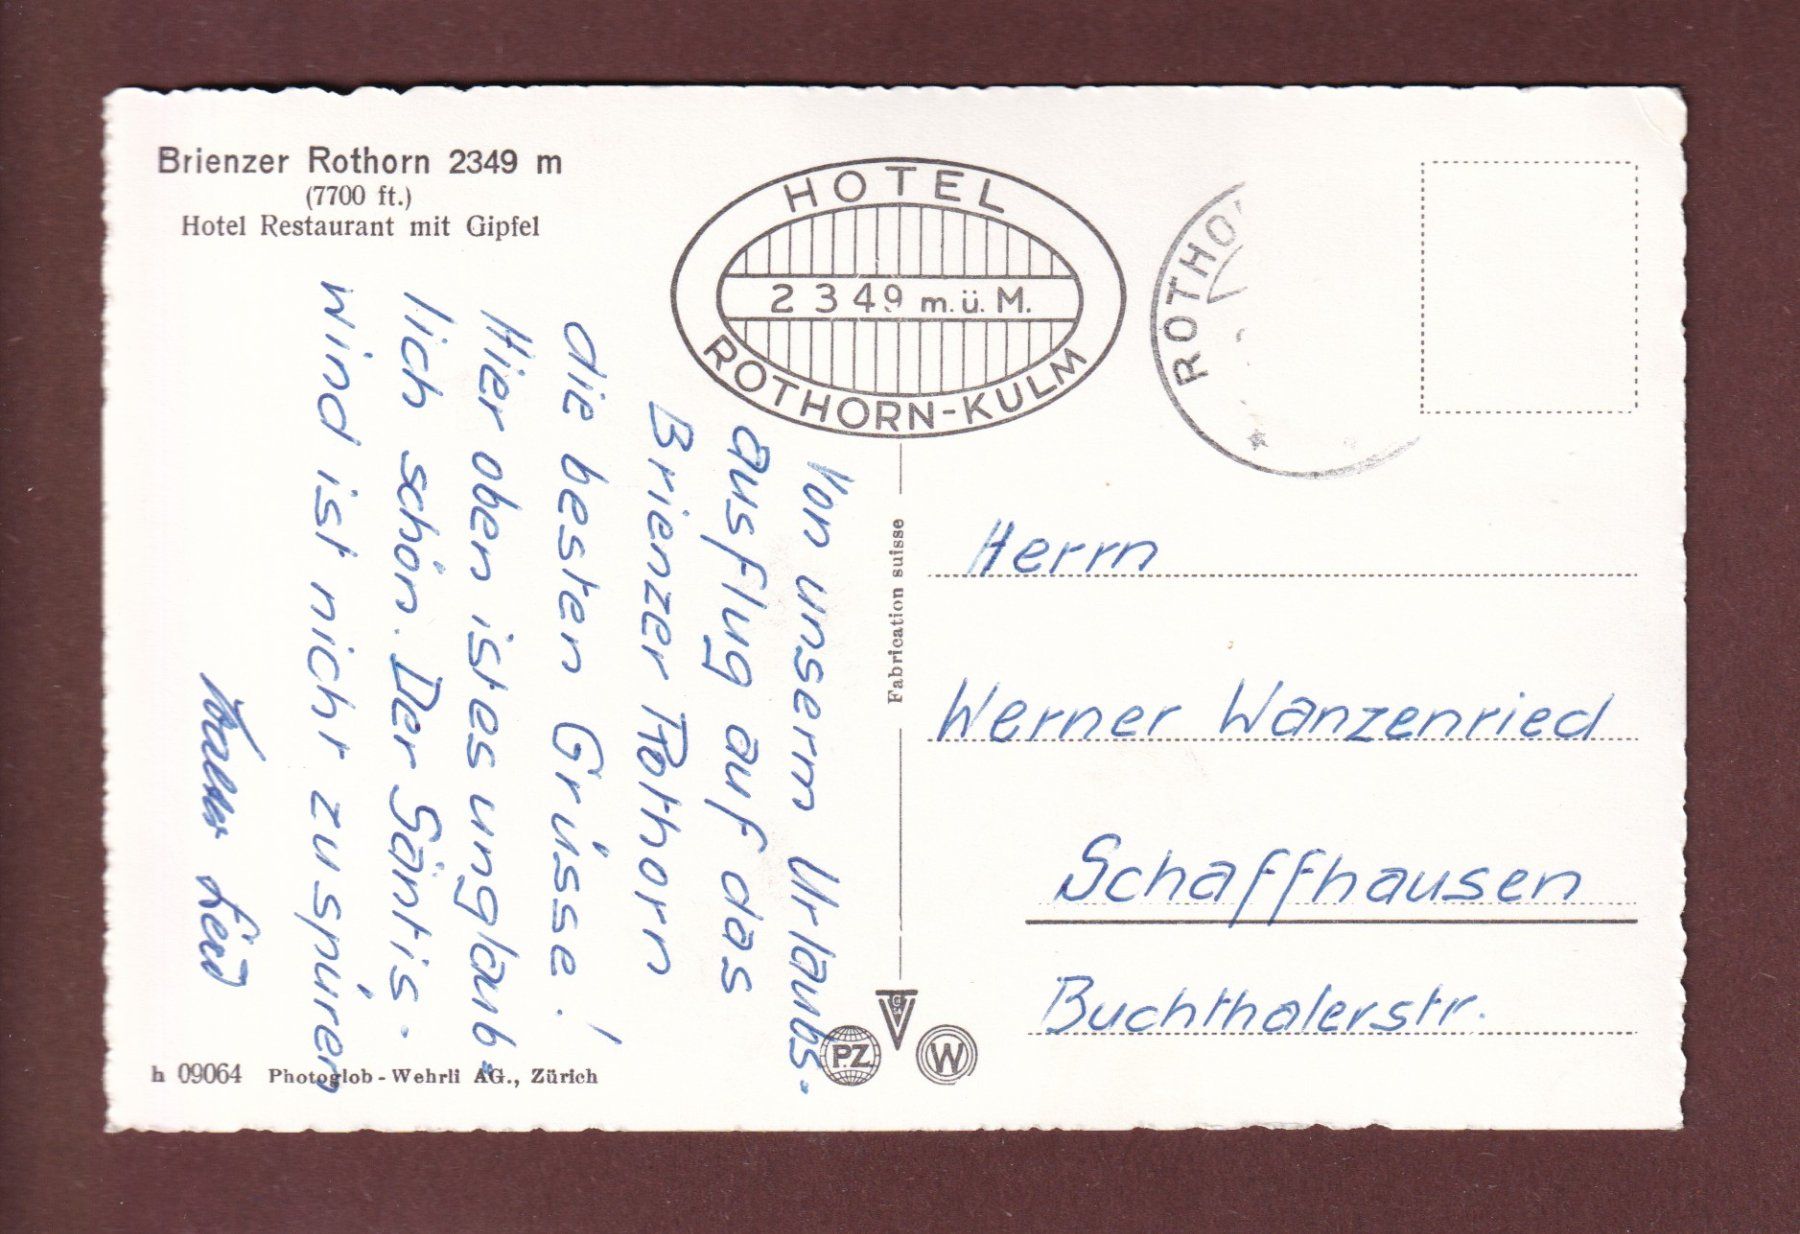 Brienzer Rothorn 2349 m
(7700 ft.)
Hotel Restaurant mit Gipfel
HOTEL
2349 m.ü.M.
ROTHORN-KULM
ROTHO
Von unsern Urlaubs-
ausflug auf das
Brienzer Rothorn
die besten Grüsse!
Hier oben ist es unglaub=
lich schön. Der Säntis-
wind ist nicht zuspüren
Walter
Fabrication suisse
Herrn
Werner Wanzenried
Schaffhausen
Buchthalerstr.
PZ
W
h 09064 Photoglob-Wehrli AG., Zürich